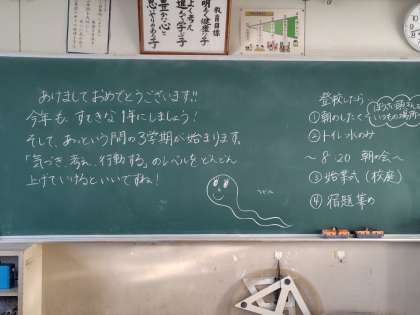 教育目標
明るく健康な子
よく考え
進んで学ぶ子
豊かな心と
思いやりのある子
あけましておめでとうございます!!
今年も、すてきな1年にしましょう!
そして、あっという間の3学期が始まります。
「気づき、考え、行動する。」のレベルをどんどん
上げていけるといいですね!
へびん
登校したら
①朝のしたく
ぼうさい頭きんは
いつもの場所へ
②トイレ・水のみ
〜8:20 朝の会〜
③始業式(校庭)
④宿題集め